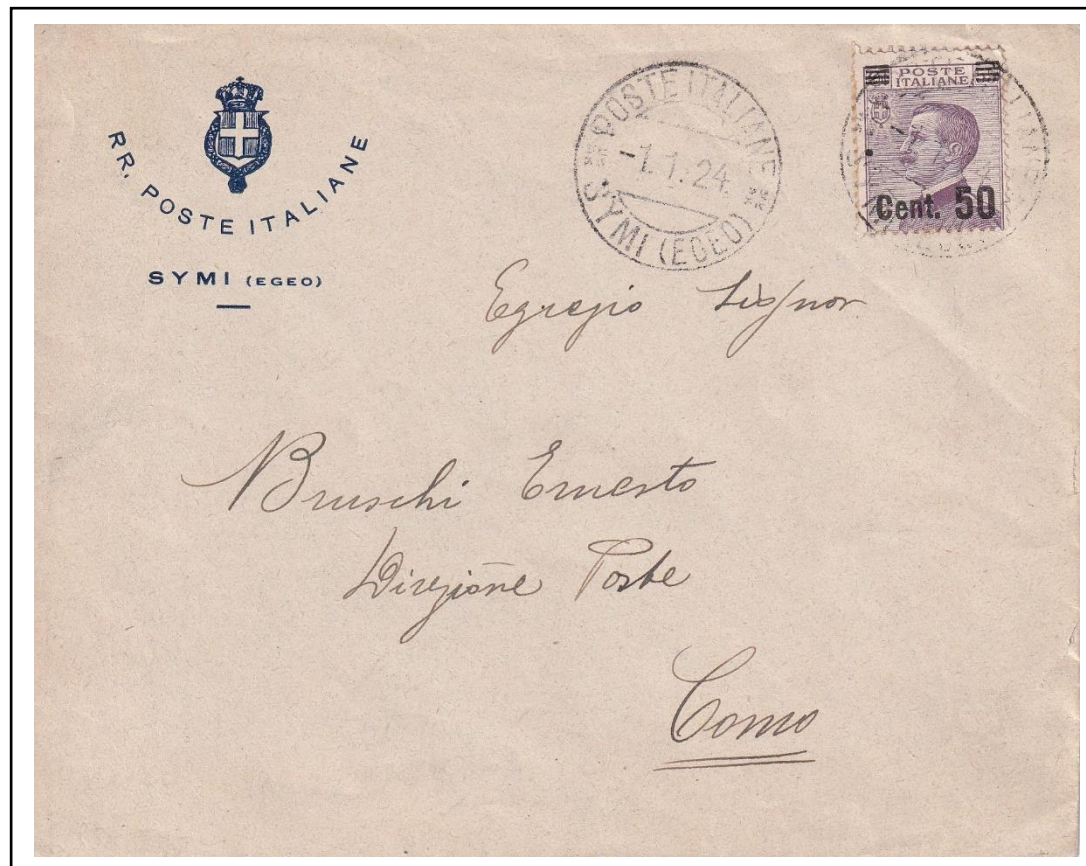 RR. POSTE ITALIANE
SYMI (EGEO)
POSTE ITALIANE
-1.1.24.
SYMI (EGEO)
POSTE
ITALIANE
Cent. 50
Egregio Signor
Bruschi Ernesto
Direzione Poste
Como